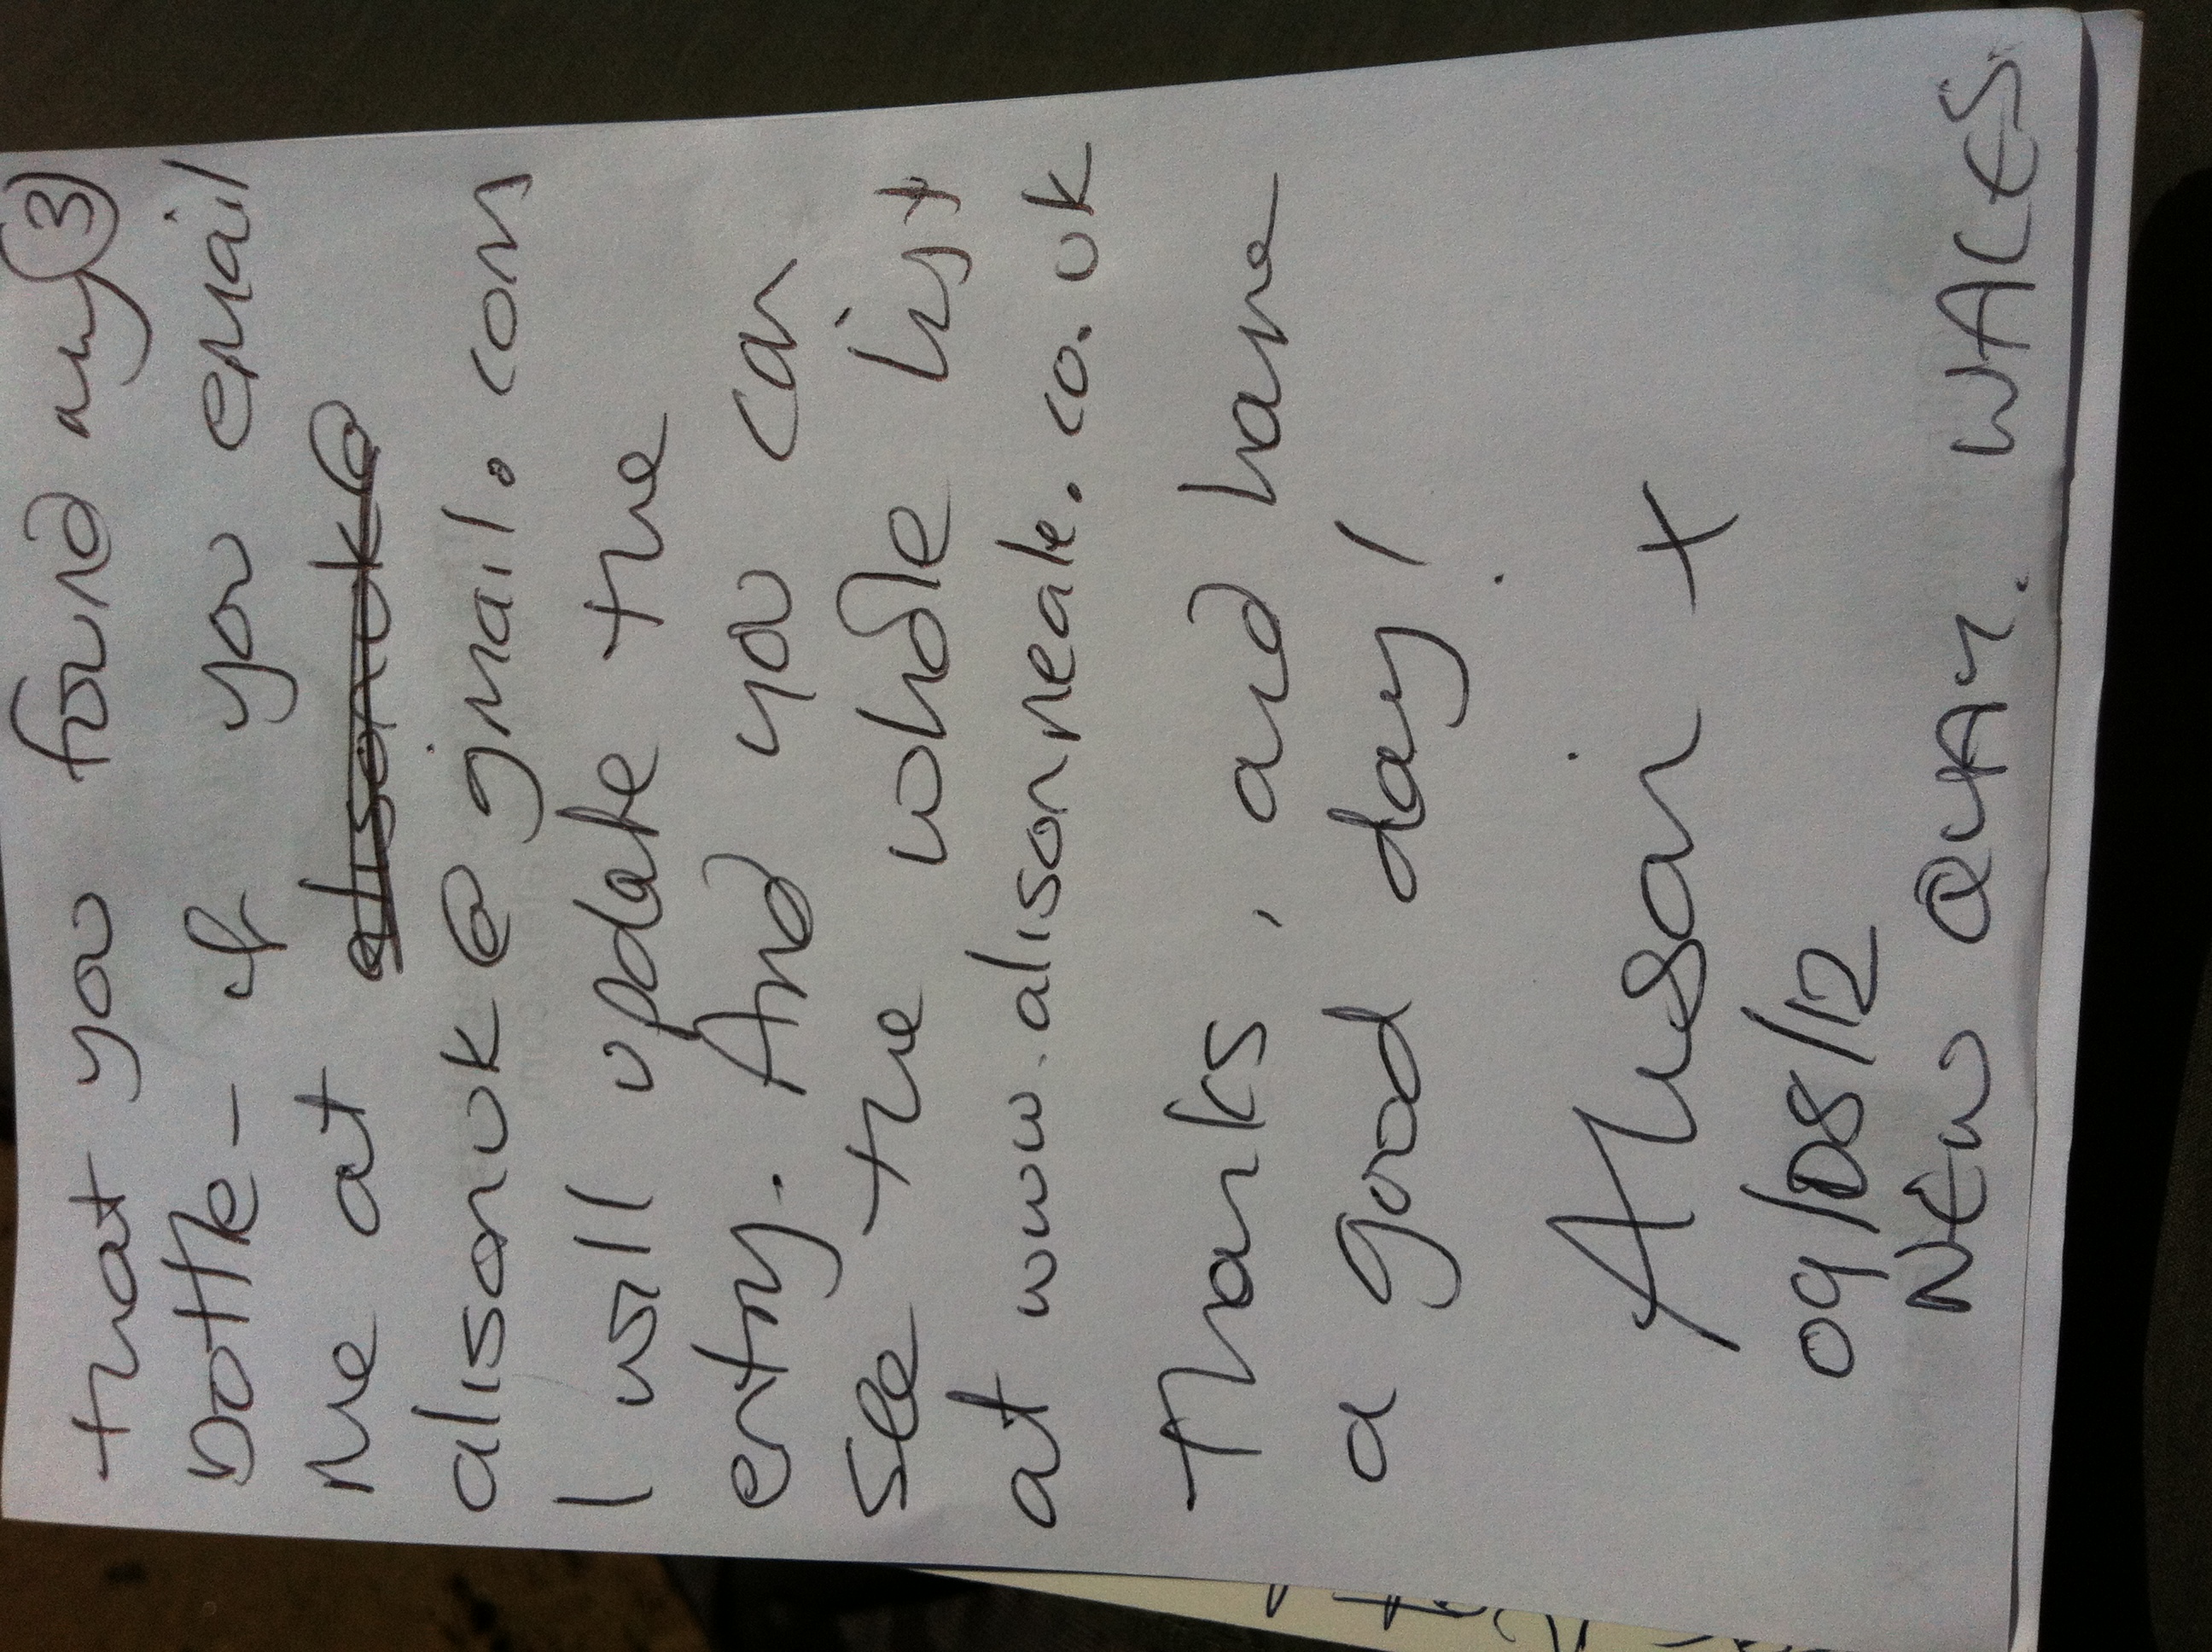 that you found my ③
bottle - if you email
me at alisonuk@
alisonuk@gmail.com
I will update the
entry. And you can
see the whole list
at www.alisonneale.co.uk
Thanks, and have
a good day!
Alison x
09/08/12
NEW QUAY. WALES